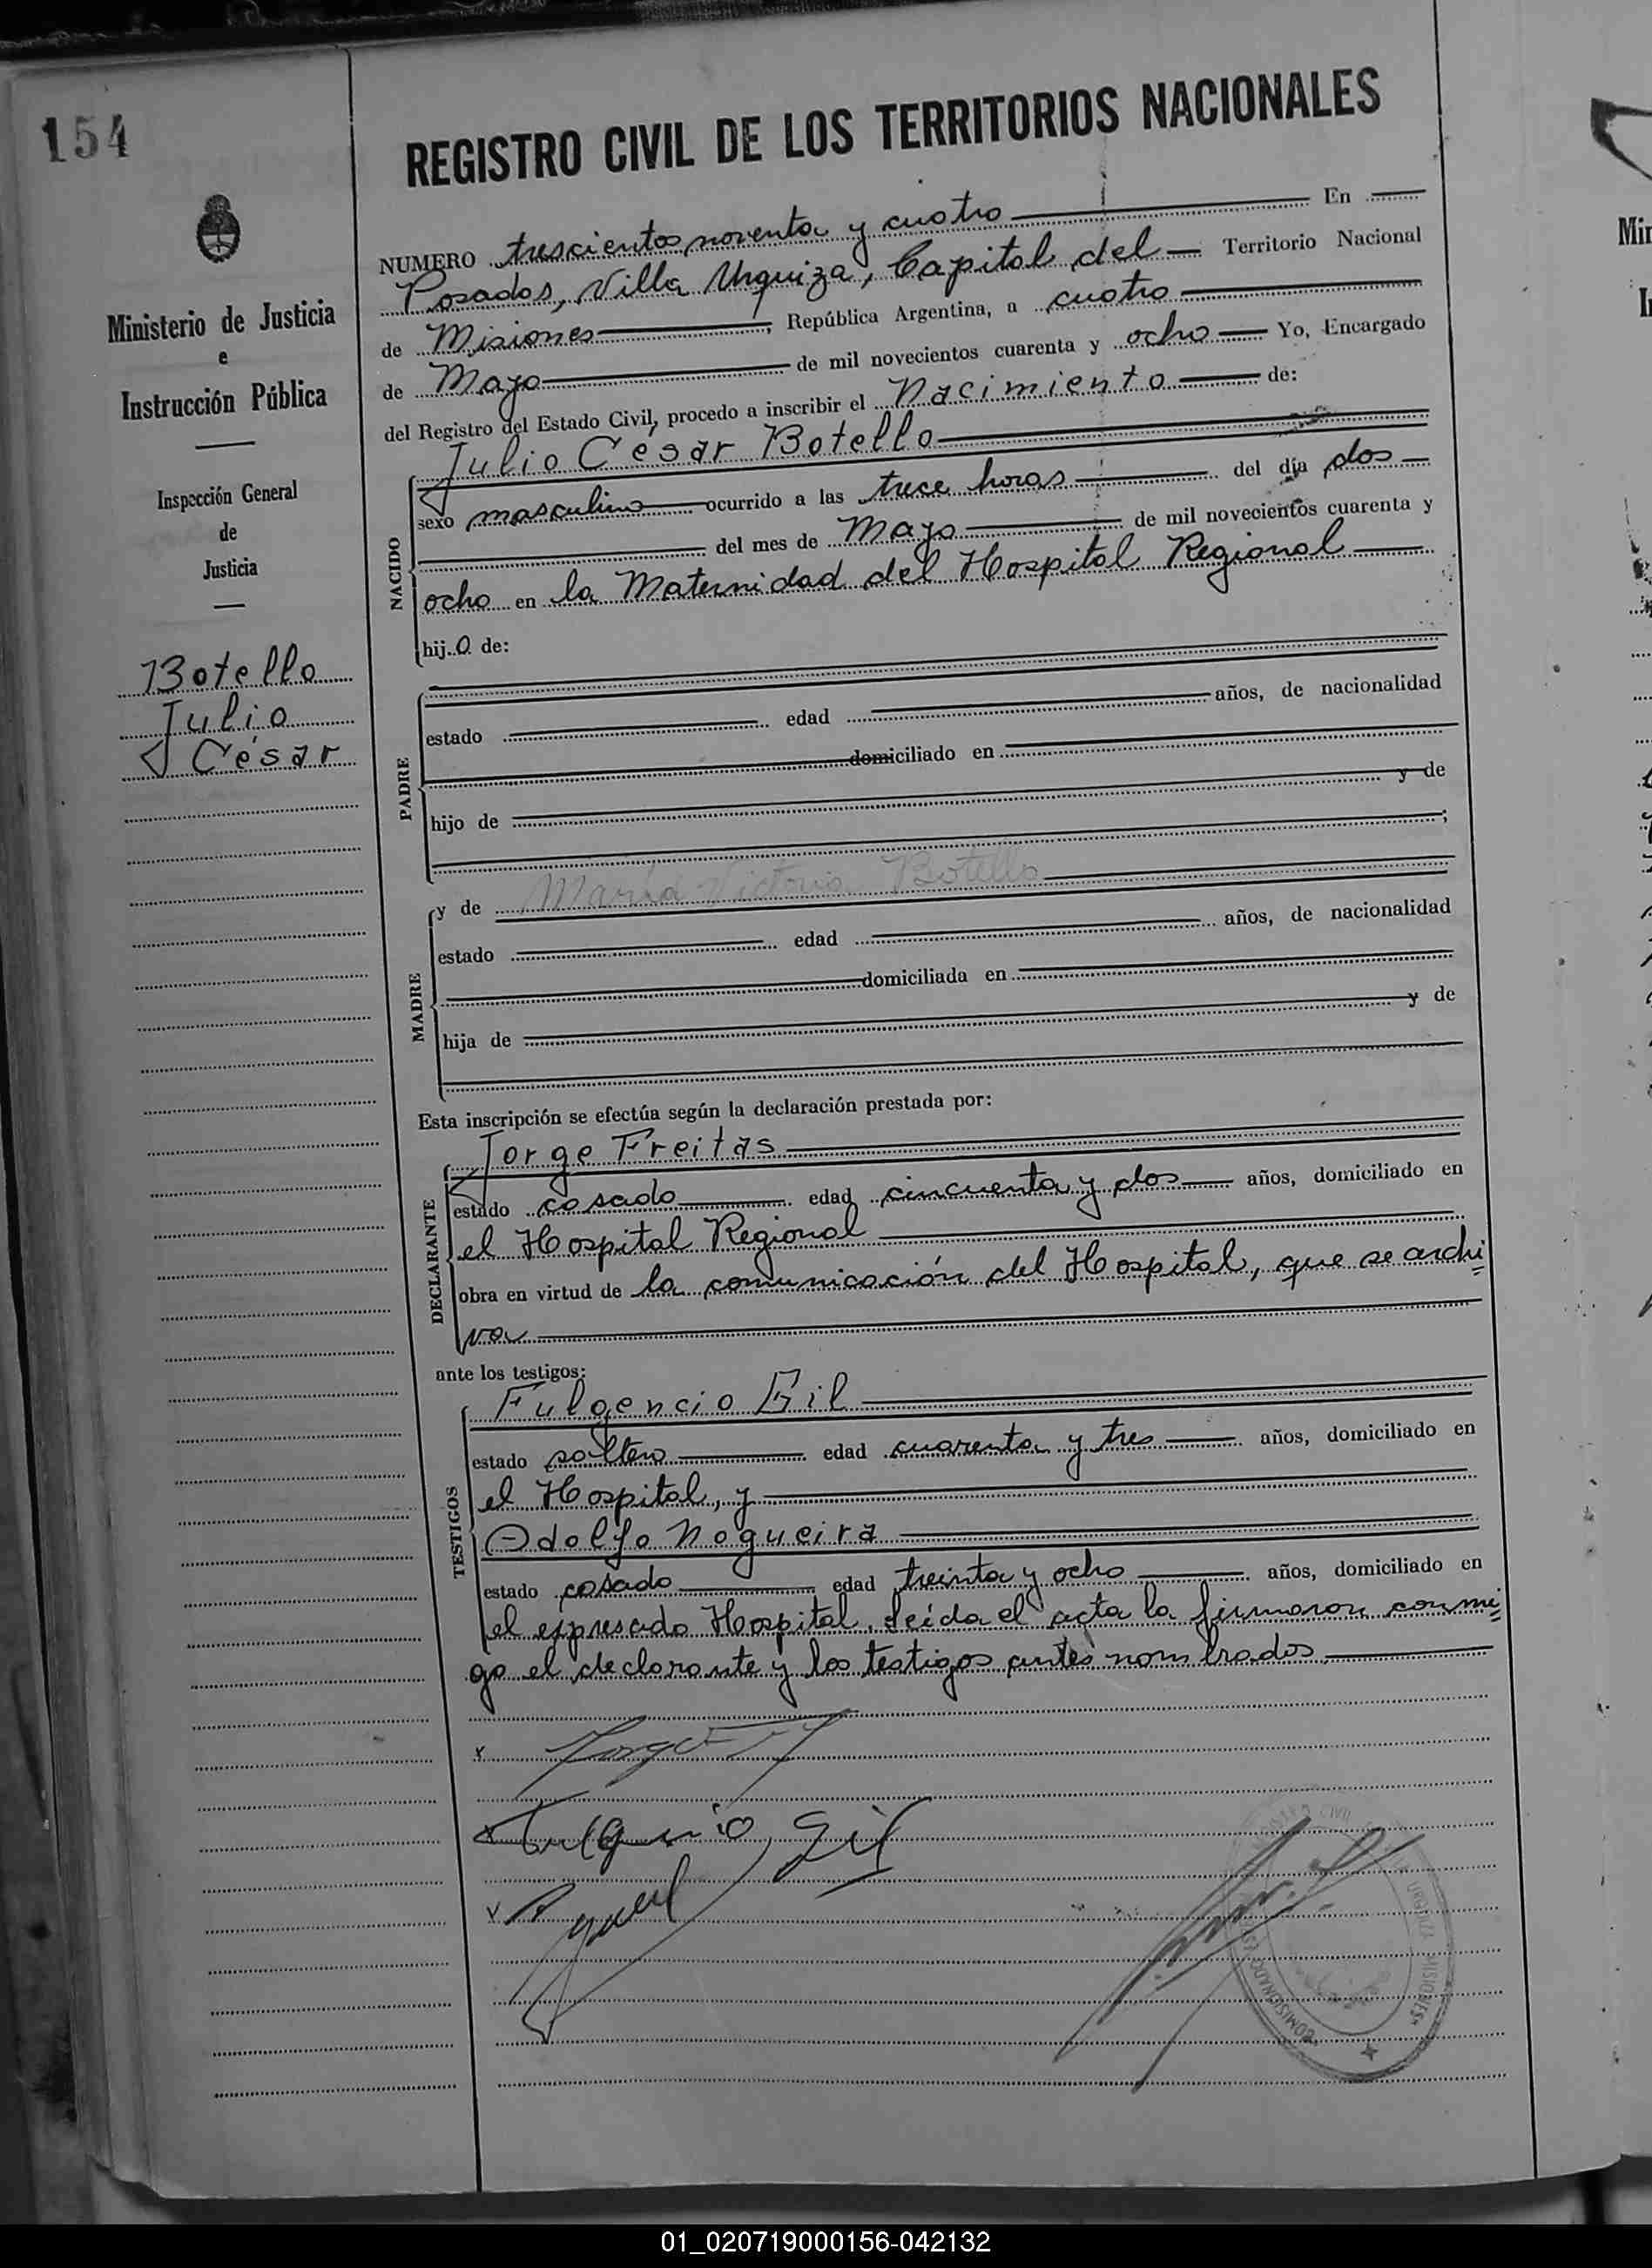 154
REGISTRO CIVIL DE LOS TERRITORIOS NACIONALES
Ministerio de Justicia
e
Instrucción Pública
Inspección General
de
Justicia
Botello
Julio
César
NUMERO trescientos noventa y cuatro En
Posadas, Villa Urquiza, Capital del Territorio Nacional
de Misiones, República Argentina, a cuatro
de Mayo de mil novecientos cuarenta y ocho Yo, Encargado
del Registro del Estado Civil, procedo a inscribir el Nacimiento de:
Julio César Botello
NACIDO
sexo masculino ocurrido a las trece horas del día dos
del mes de Mayo de mil novecientos cuarenta y
ocho en la Maternidad del Hospital Regional
hijo de:
PADRE
estado edad años, de nacionalidad
domiciliado en
hijo de y de
;
MADRE
y de María Victoria Botello
estado edad años, de nacionalidad
domiciliada en
hija de y de
Esta inscripción se efectúa según la declaración prestada por:
DECLARANTE
Jorge Freitas
estado casado edad cincuenta y dos años, domiciliado en
el Hospital Regional
obra en virtud de la comunicación del Hospital, que se archi=
va
ante los testigos:
TESTIGOS
Fulgencio Gil
estado soltero edad cuarenta y tres años, domiciliado en
el Hospital, y
Adolfo Nogueira
estado casado edad treinta y ocho años, domiciliado en
el expresado Hospital. Leída el acta la firmaron conmi=
go el declarante y los testigos antes nombrados
Fulgencio Gil
MISIONES
01_020719000156-042132